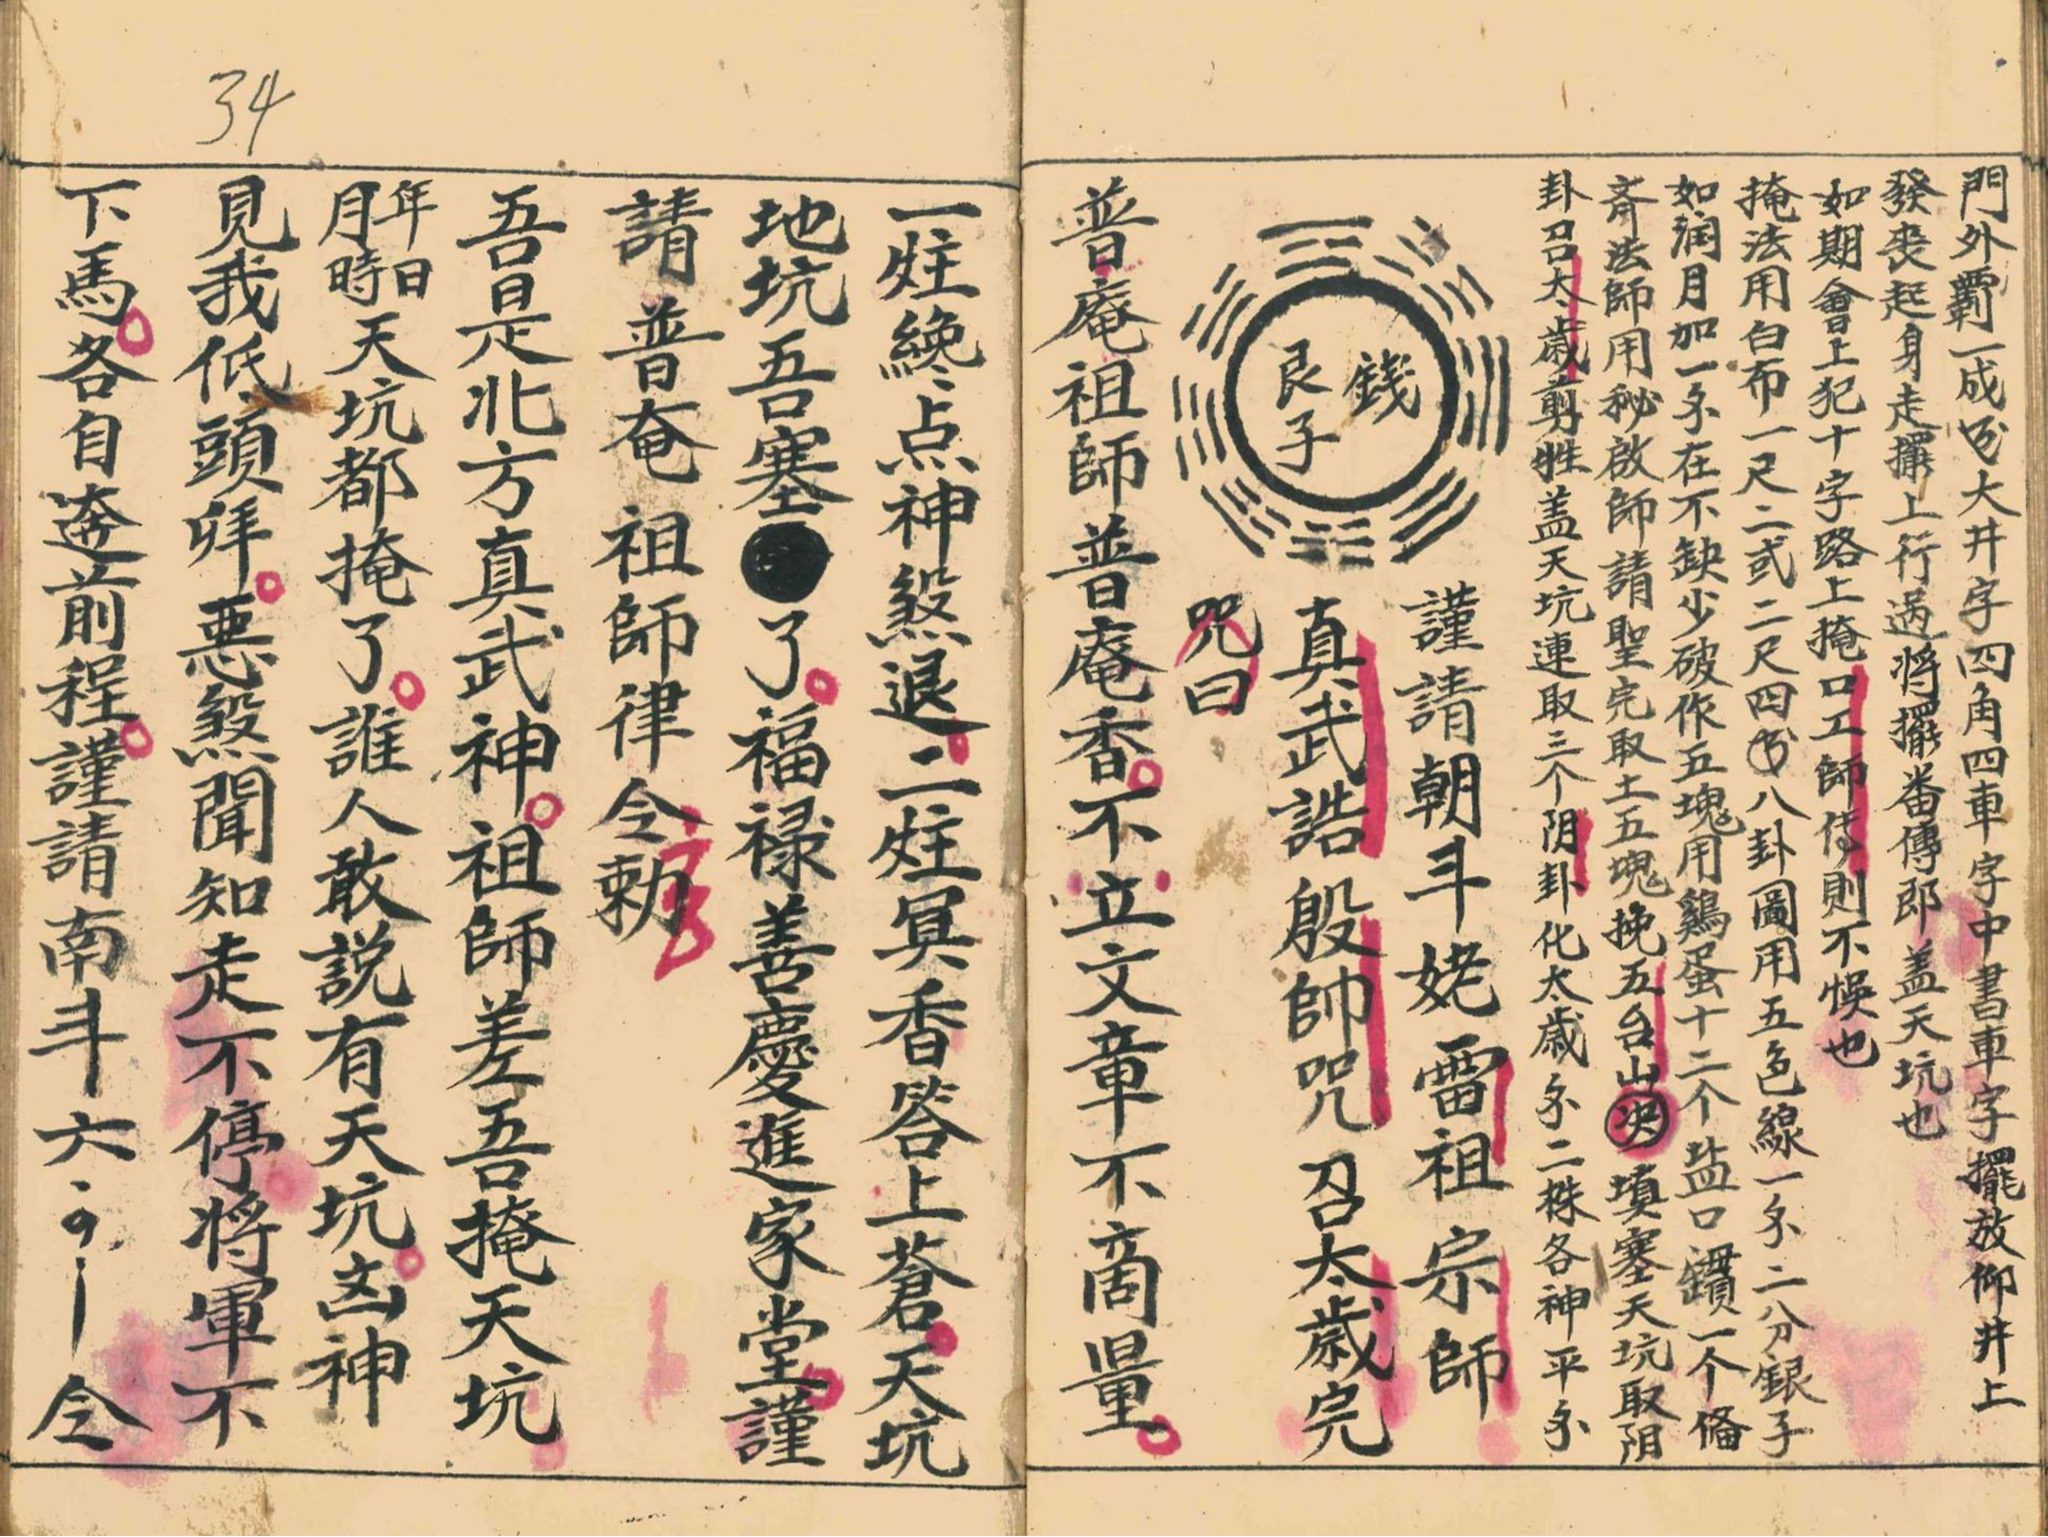 門外覇一成 大井字四角四車字中書車字擺放仰井上
發喪起身走擺上行过將擺番傳郎盖天坑也
如期會上犯十字路上掩口工師傅則不悞也
掩法用白布一尺二或二尺四 八卦圖用五色線一尒二分銀子
如润月加一尒在不缺少破作五塊用鷄蛋十二个盐口鑽一个俻
斎法師用秘啟師請聖完取土五塊挽五台山决填塞天坑取阴
卦召太歲剪牲盖天坑連取三个阴卦化太歲尒二株各神平尒
錢
艮子
謹請朝斗姥雷祖宗師
真武誥殷帥咒召太歲完
咒曰
普庵祖師普庵香不立文章不啇量
34
一炷纔点神煞退二炷冥香答上蒼天坑
地坑吾塞了福禄善慶進家堂謹
請普奄祖師律令勅
吾是北方真武神祖師差吾掩天坑
年月日時天坑都掩了誰人敢説有天坑凶神
見我低頭拜惡煞聞知走不停將軍不
下馬各自逩前程謹請南斗六 令